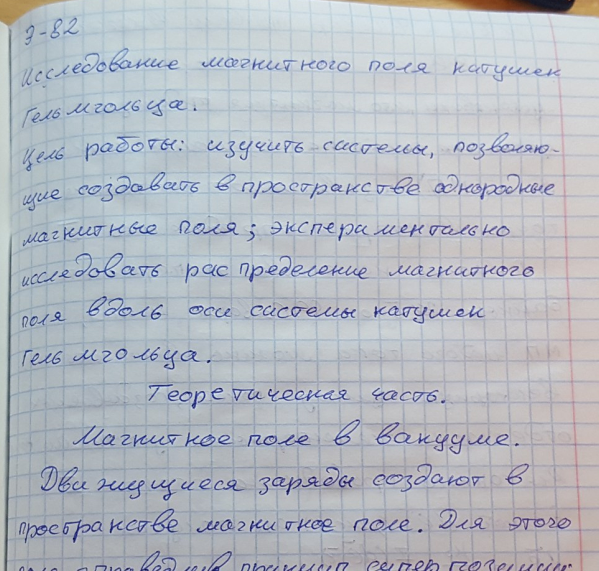 Э-82
Исследование магнитного поля катушек
Гельмгольца.
Цель работы: изучить системы, позволяю-
щие создавать в пространстве однородные
магнитные поля; экспериментально
исследовать распределение магнитного
поля вдоль оси системы катушек
Гельмгольца.
Теоретическая часть.
Магнитное поле в вакууме.
Движущиеся заряды создают в
пространстве магнитное поле. Для этого
поля справедлив принцип суперпозиции: